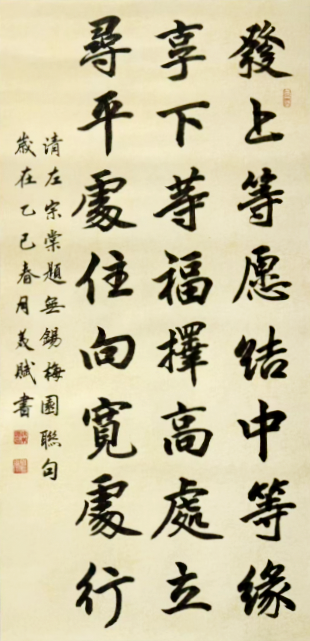 發上等愿结中等缘
享下等福擇高處立
尋平處住向寬處行
清左宗棠題無錫梅園聯句
歲在乙巳春月美賦書